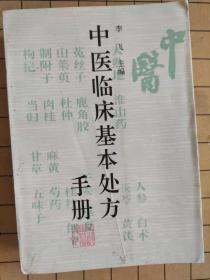 李飞 主编
中医临床基本处方
手册
中醫
菟丝子
山茱萸
制附子
枸杞
鹿角胶
杜仲
肉桂
当归
淮山药
麻黄
芍药
甘草
五味子
人参
白术
黄芪